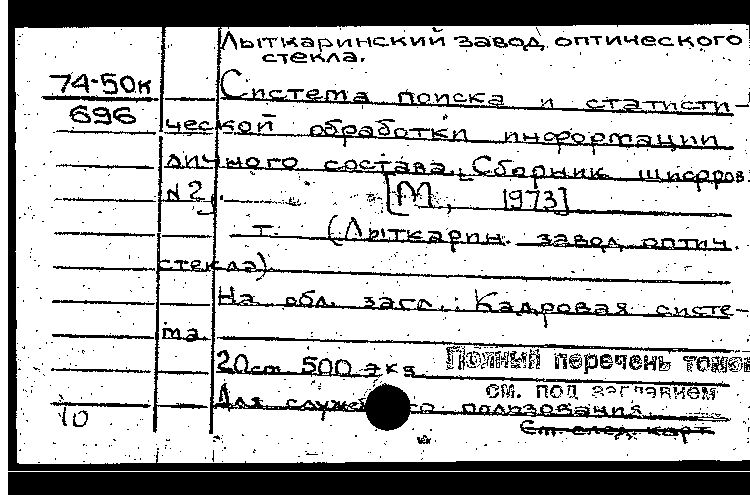 Лыткаринский завод оптического
стекла.
74-50к
696
Система поиска и статисти-
ческой обработки информации
личного состава. Сборник шифров
N2. [М, 1973]
т. (Лыткарин. завод оптич.
стекла)
На обл. загл.: Кадровая систе-
ма.
20см 500 экз
Полный перечень томов
см. под заглавием
Для пользования.
См. след. карт
10